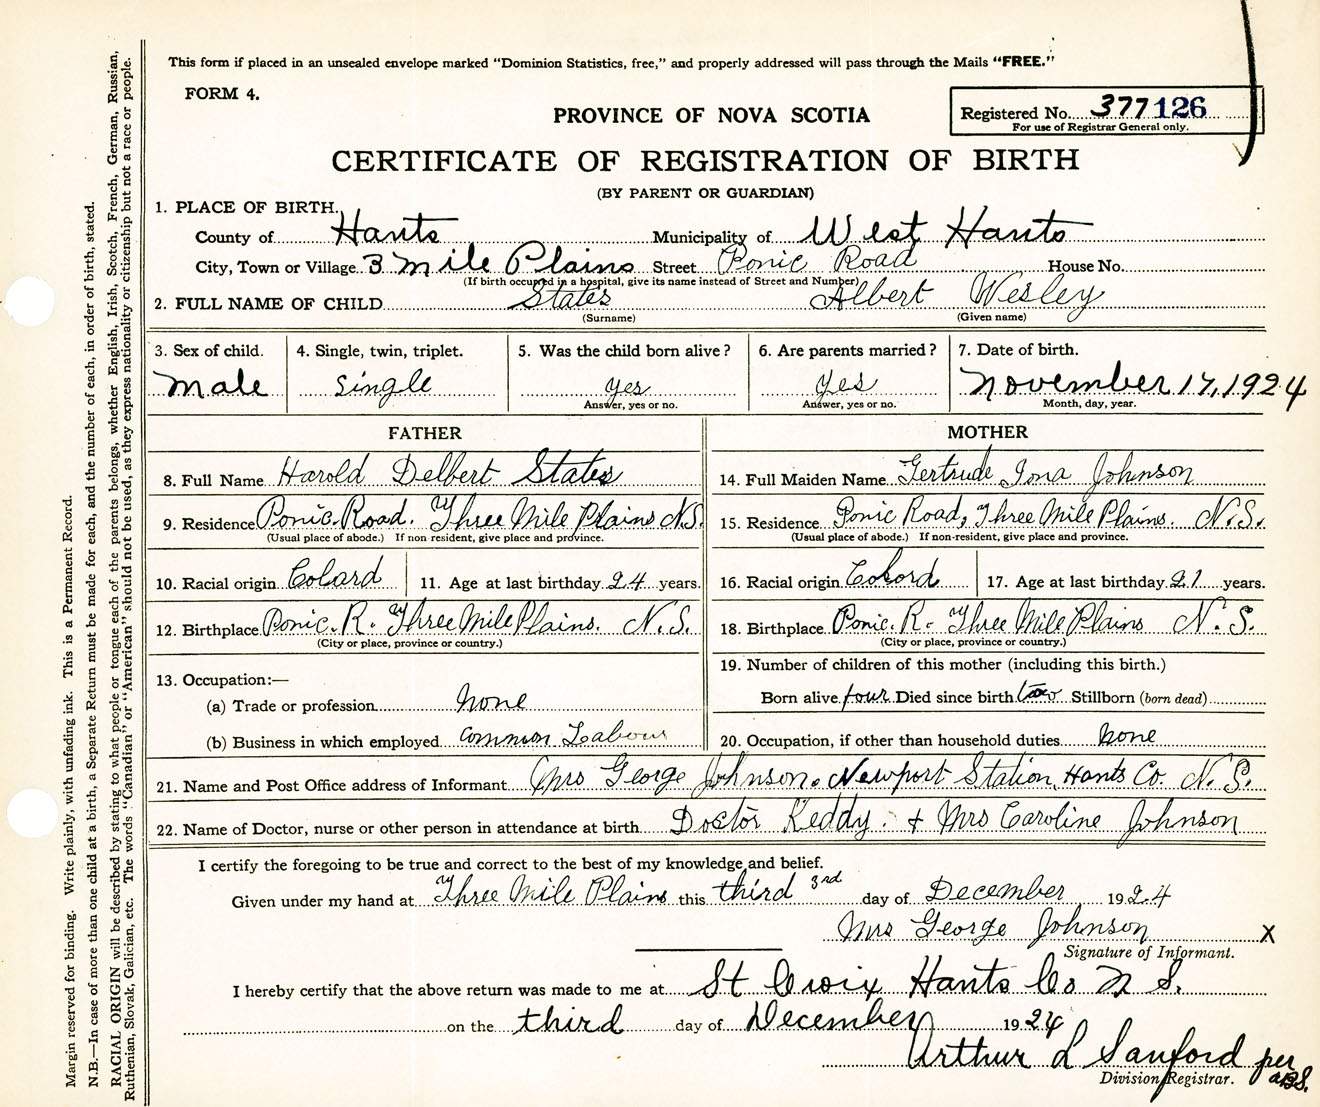 This form if placed in an unsealed envelope marked "Dominion Statistics, free," and properly addressed will pass through the Mails "FREE."
FORM 4.
PROVINCE OF NOVA SCOTIA
Registered No. 377126
For use of Registrar General only.
CERTIFICATE OF REGISTRATION OF BIRTH
(BY PARENT OR GUARDIAN)
1. PLACE OF BIRTH.
County of Hants Municipality of West Hants
City, Town or Village 3 mile Plains Street Ponic Road House No.
(If birth occurred in a hospital, give its name instead of Street and Number)
2. FULL NAME OF CHILD States Albert Wesley
(Surname) (Given name)
3. Sex of child. 4. Single, twin, triplet. 5. Was the child born alive? 6. Are parents married? 7. Date of birth.
Male Single yes yes November 17, 1924
Answer, yes or no. Answer, yes or no. Month, day, year.
FATHER MOTHER
8. Full Name Harold Delbert States 14. Full Maiden Name Gertrude Iona Johnson
9. Residence Ponic. Road. Three Mile Plains N.S. 15. Residence Ponic Road, Three Mile Plains. N.S.
(Usual place of abode.) If non-resident, give place and province. (Usual place of abode.) If non-resident, give place and province.
10. Racial origin Colard 11. Age at last birthday 24 years. 16. Racial origin Colord 17. Age at last birthday 21 years.
12. Birthplace Ponic. R. Three Mile Plains. N.S. 18. Birthplace Ponic. R. Three Mile Plains N.S.
(City or place, province or country.) (City or place, province or country.)
19. Number of children of this mother (including this birth.)
13. Occupation:—
(a) Trade or profession none Born alive four Died since birth two Stillborn (born dead)
(b) Business in which employed common Labour 20. Occupation, if other than household duties none
21. Name and Post Office address of Informant Mrs George Johnson. Newport Station, Hants Co. N.S.
22. Name of Doctor, nurse or other person in attendance at birth Doctor Keddy. + Mrs Caroline Johnson
I certify the foregoing to be true and correct to the best of my knowledge and belief.
Given under my hand at Three Mile Plains this third 3rd day of December 1924
Mrs George Johnson X
Signature of Informant.
I hereby certify that the above return was made to me at St Croix Hants Co N S.
on the third day of December 1924
Arthur L Sanford per
Division Registrar.
Margin reserved for binding. Write plainly, with unfading ink. This is a Permanent Record.
N.B.—In case of more than one child at a birth, a Separate Return must be made for each, and the number of each, in order of birth, stated.
RACIAL ORIGIN will be described by stating to what people or tongue each of the parents belongs, whether English, Irish, Scotch, French, German, Russian,
Ruthenian, Slovak, Galician, etc. The words "Canadian" or "American" should not be used, as they express nationality or citizenship but not a race or people.